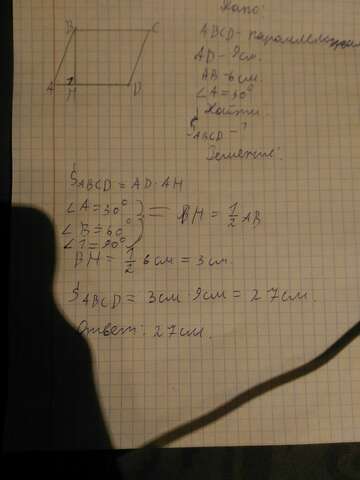 B C
A H D
Дано:
ABCD - параллелограмм
AD - 9см.
AB - 6см.
∠A = 30°
Найти:
S ABCD - ?
Решение:
S ABCD = AD · AH
∠A = 30°
∠B = 60° = BH = 1/2 AB
∠H = 90°
BH = 1/2 6см = 3см.
S ABCD = 3см · 9см = 27см.
Ответ: 27см.